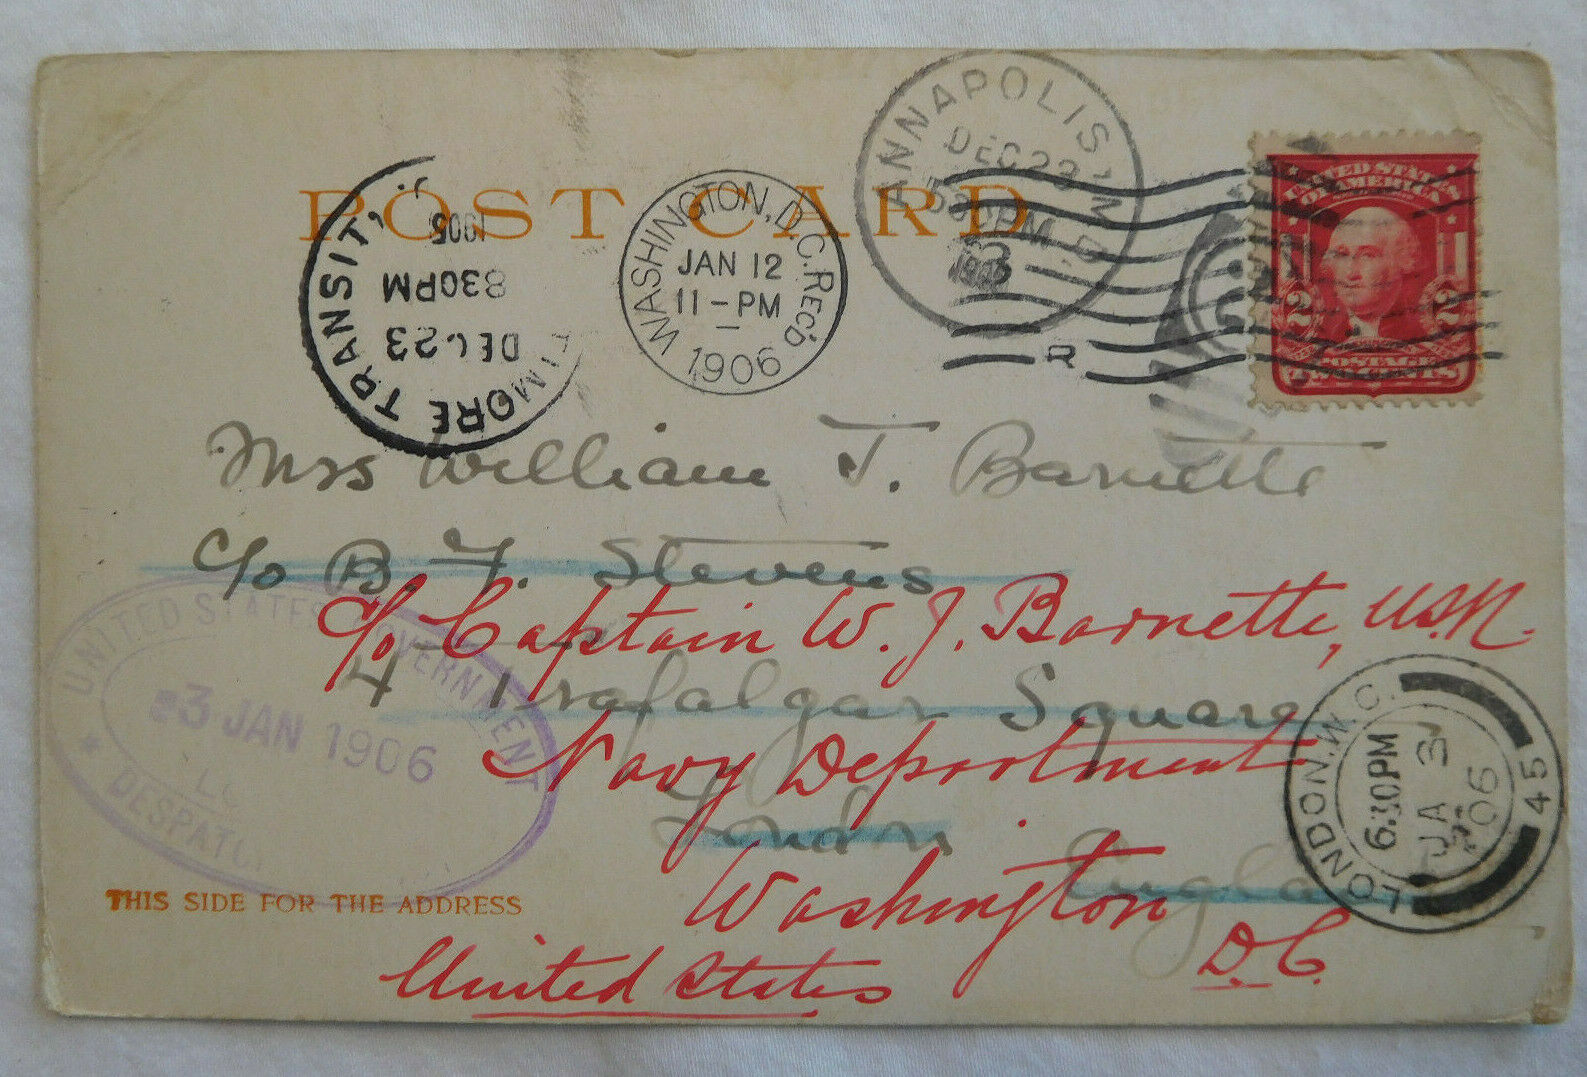 POST CARD
TRANSIT,
MORE
DEC 23
830PM
1905
WASHINGTON, D.C. REC'D
JAN 12
11-PM
1906
ANNAPOLIS, MD.
DEC 23
530PM
R
UNITED STATES
OF AMERICA
2 2
POSTAGE
Mrs William J. Barnette
c/o B. F. Stevens
c/o Captain W. J. Barnette, U.S.N.
4 Trafalgar Square
Navy Department
London
England
Washington
D.C.
United States
UNITED STATES GOVERNMENT
3 JAN 1906
DESPATC
LONDON.W.C.
6.30PM
JA 3
06
45
THIS SIDE FOR THE ADDRESS